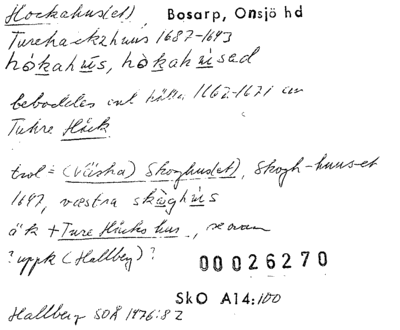 Hockahus(et), Bosarp, Onsjö hd
Turehackzhuus 1687-1693
hòkahu̇s, hòkahu̇sad
beboddes enl 1662-1671 av
Tuhre Håck
trol = (västra) Skoghus(et), Skogh-huus-et
1697, västra skòghu̇s
äk + Ture Håcks hus, senare
? uppk (Hallberg)?
00026270
SkO A14:100
Hallberg SOÅ 1976:82